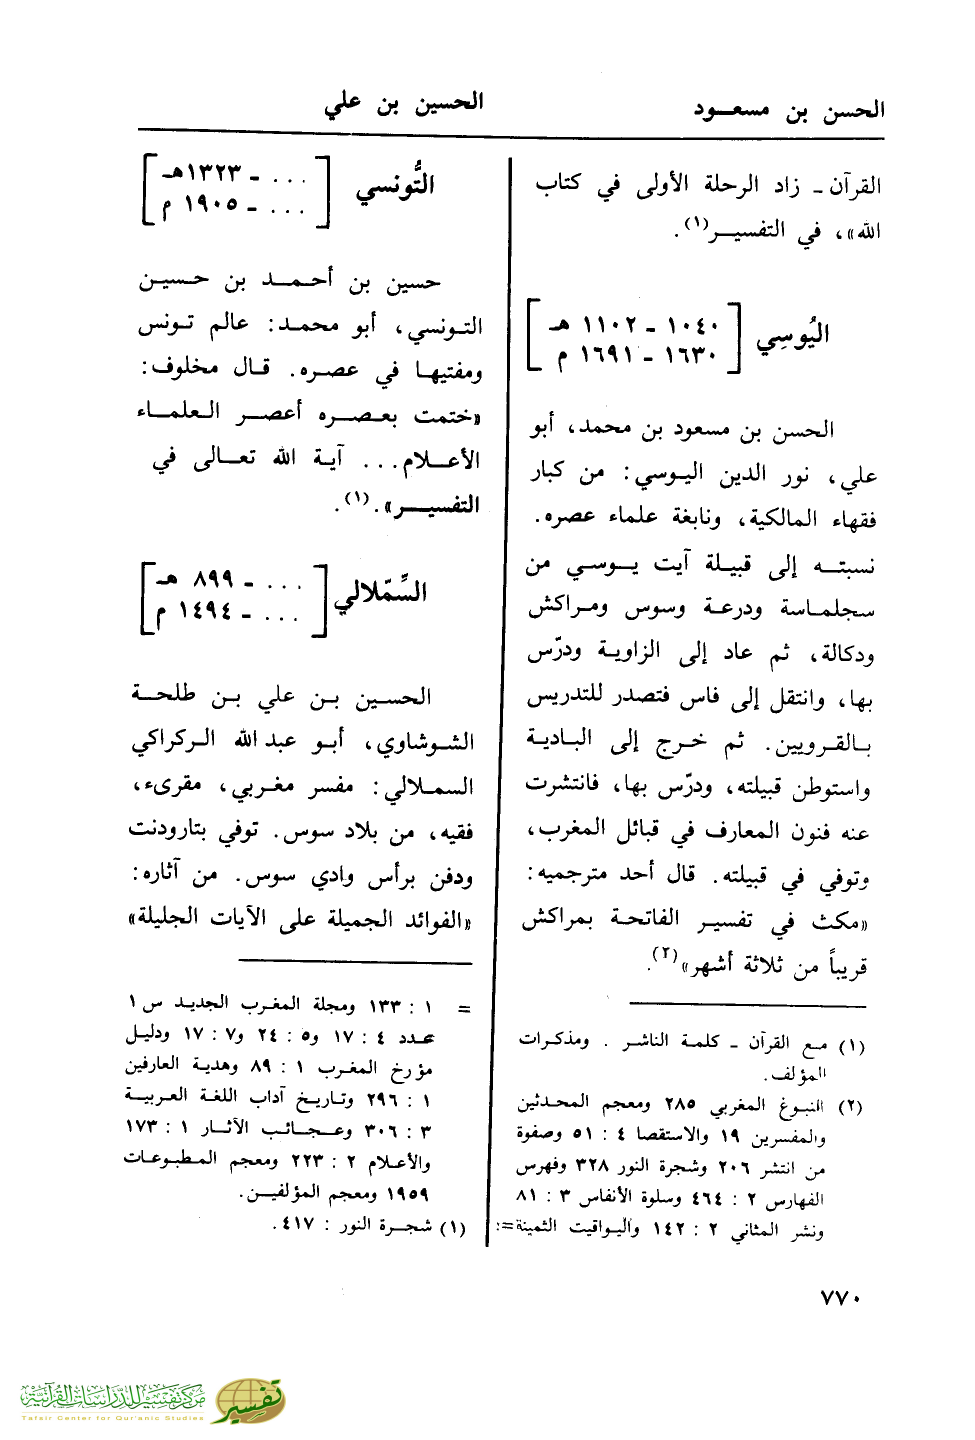 الحسن بن مسعـود
الحسين بن علي
القرآن ـ زاد الرحلة الأولى في كتاب
الله»، في التفسيـر(١).
اليُوسِي [١٠٤٠ ـ ١١٠٢ هـ
١٦٣٠ ـ ١٦٩١ م]
الحسن بن مسعود بن محمد، أبو
علي، نور الدين اليوسي: من كبار
فقهاء المالكية، ونابغة علماء عصره.
نسبتـه إلى قبيلة آيت يـوسي من
سجلمـاسة ودرعة وسوس ومـراكش
ودكالة، ثم عاد إلى الزاوية ودرّس
بها، وانتقل إلى فاس فتصدر للتدريس
بـالقرويين. ثم خـرج إلى البـادية
واستوطن قبيلته، ودرّس بها، فانتشرت
عنه فنون المعارف في قبائل المغرب،
وتوفي في قبيلته. قال أحد مترجميه:
«مكث في تفسير الفاتحة بمراكش
قريباً من ثلاثة أشهر»(٢).
(١) مـع القرآن ـ كلمـة الناشـر . ومذكـرات
المؤلف.
(٢) النبـوغ المغربي ٢٨٥ ومعجم المحـدثين
والمفسرين ١٩ والاستقصا ٤ : ٥١ وصفوة
من انتشر ٢٠٦ وشجرة النور ٣٢٨ وفهرس
الفهارس ٢ : ٤٦٤ وسلوة الأنفاس ٣ : ٨١
ونشر المثاني ٢ : ١٤٢ واليواقيت الثمينة=:
التُّونسي [... ـ ١٣٢٣هـ
... ـ ١٩٠٥ م]
حسين بن أحـمـد بن حـسيـن
التـونسي، أبـو محمـد: عالم تـونس
ومفتيهـا في عصـره. قـال مخلوف:
«ختمت بعـصـره أعصر الـعلمـاء
الأعـلام... آيـة الله تعـالى في
التفسيـر».(١).
السِّمْلالي [... ـ ٨٩٩ هـ
... ـ ١٤٩٤ م]
الحسـين بـن علي بـن طلحـة
الشوشاوي، أبـو عبد الله الـركراكي
السمـلالي: مفسر مغـربي، مقرىء،
فقيه، من بلاد سوس. توفي بتارودنت
ودفن برأس وادي سوس. من آثاره:
«الفوائد الجميلة على الآيات الجليلة»
= ١ : ١٣٣ ومجلة المغـرب الجديـد س١
عـدد ٤ : ١٧ و٥ : ٢٤ و٧ : ١٧ ودليـل
مؤرخ المغـرب ١ : ٨٩ وهدية العارفين
١ : ٢٩٦ وتـاريـخ آداب اللغة العـربيـة
٣ : ٣٠٦ وعـجـائـب الآثـار ١ : ١٧٣
والأعلام ٢ : ٢٢٣ ومعجم المـطبـوعـات
١٩٥٩ ومعجم المؤلفيـن.
(١) شجـرة النور : ٤١٧.
٧٧٠
مركز تفسير للدراسات القرآنية
Tafsir Center for Qur'anic Studies
تفسير